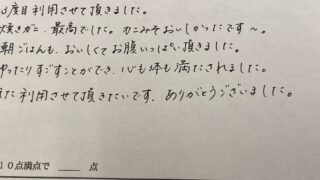 3度目利用させて頂きました。
焼きガニ、最高でした。カニみそおいしかったです〜。
朝ごはんも、おいしくてお腹いっぱい頂きました。
ゆったりすごすことができ、心も体も満たされました。
また利用させて頂きたいです。ありがとうございました。
10点満点で ____ 点